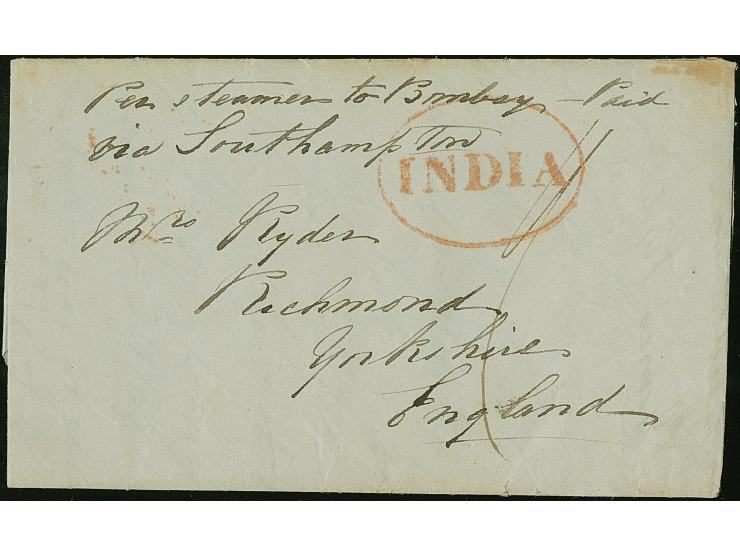 Per steamer to Bombay - Paid
via Southampton
INDIA
Mrs Ryder
Richmond
Yorkshire
England